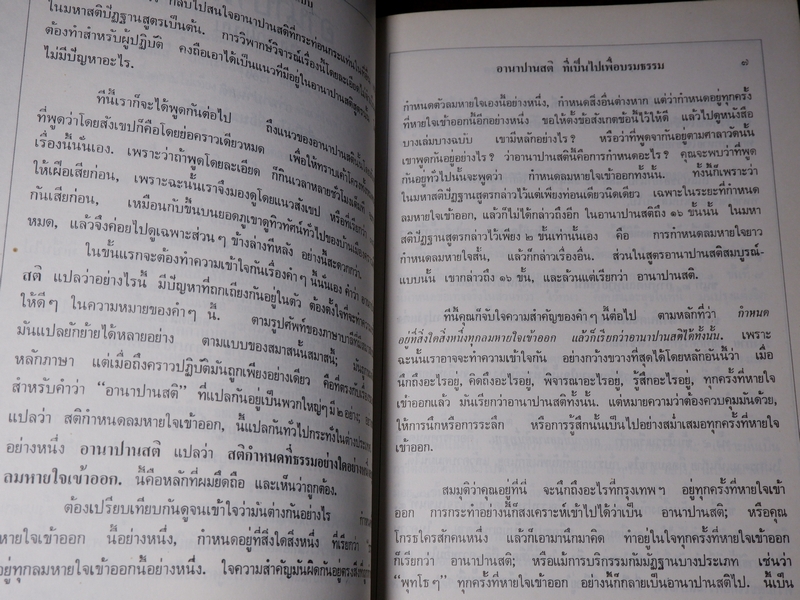 กลับไปสนใจอานาปานสติที่กระท่อนกระแท่นในที่อื่น
ในมหาสติปัฏฐานสูตรเป็นต้น. การวิพากษ์วิจารณ์เรื่องนี้โดยละเอียด
ต้องทำสำหรับผู้ปฏิบัติ คงถือเอาได้เป็นแนวที่มีอยู่ในอานาปานสติสูตร
ไม่มีปัญหาอะไร.
ทีนี้เราก็จะได้พูดกันต่อไป ถึงแนวของอานาปานสติ
ที่พูดว่าโดยสังเขปก็คือโดยย่อคราวเดียวหมด เพื่อให้ทราบเค้าโครง
เรื่องนี้นั่นเอง. เพราะว่าถ้าพูดโดยละเอียด ก็กินเวลาหลายชั่วโมง
ให้เฝือเสียก่อน, เพราะฉะนั้นเราจึงมองดูโดยแนวสังเขป หรือที่เรียกว่า
กันเสียก่อน, เหมือนกับขึ้นบนยอดภูเขาดูทิวทัศน์ทั่วไปของบ้านเมือง
หมด, แล้วจึงค่อยไปดูเฉพาะส่วนๆ ข้างล่างทีหลัง อย่างนี้สะดวกกว่า.
ในขั้นแรกจะต้องทำความเข้าใจกันเรื่องคำๆ นี้นั่นเอง คำว่า
สติ แปลว่าอย่างไรนี้ มีปัญหาที่ถกเถียงกันอยู่ในตัว ต้องตั้งใจที่จะทำความ
ให้ดีๆ ในความหมายของคำๆ นี้. ตามรูปศัพท์ของภาษาบาลี
มันแปลยักย้ายได้หลายอย่าง ตามแบบของสมาสนั้นสมาสนี้;
หลักภาษา แต่เมื่อถึงคราวปฏิบัติมันถูกเพียงอย่างเดียว คือที่ตรงกับ
สำหรับคำว่า “อานาปานสติ” ที่แปลกันอยู่เป็นพวกใหญ่ๆ มี ๒ อย่าง;
แปลว่า สติกำหนดลมหายใจเข้าออก, นี้แปลกันทั่วไปกระทั่งในต่างประเทศ
อย่างหนึ่ง อานาปานสติ แปลว่า สติกำหนดที่ธรรมอย่างใดอย่างหนึ่ง
ลมหายใจเข้าออก. นี้คือหลักที่ผมยึดถือ และเห็นว่าถูกต้อง.
ต้องเปรียบเทียบกันดูจนเข้าใจว่ามันต่างกันอย่างไร
หายใจเข้าออก นี้อย่างหนึ่ง, กำหนดอยู่ที่สิ่งใดสิ่งหนึ่ง ที่เรียกว่า
อยู่ทุกลมหายใจเข้าออกนี้อย่างหนึ่ง. ใจความสำคัญมันผิดกันอยู่ตรงสิ่งที่
อานาปานสติ ที่เป็นไปเพื่อบรมธรรม ๗
กำหนดตัวลมหายใจเองนี้อย่างหนึ่ง, กำหนดสิ่งอื่นต่างหาก แต่ว่ากำหนดอยู่ทุกครั้ง
ที่หายใจเข้าออกนี้อีกอย่างหนึ่ง ขอให้ตั้งข้อสังเกตข้อนี้ไว้ให้ดี แล้วไปดูหนังสือ
บางเล่มบางฉบับ เขามีหลักอย่างไร? หรือว่าที่พูดจากันอยู่ตามศาลาวัดนั้น
เขาพูดกันอยู่อย่างไร? ว่าอานาปานสตินี้คือการกำหนดอะไร? คุณจะพบว่าที่พูด
กันอยู่ทั่วไปนั้นจะพูดว่า กำหนดลมหายใจเข้าออกทั้งนั้น. ทั้งนี้ก็เพราะว่า
ในมหาสติปัฏฐานสูตรกล่าวไว้แต่เพียงท่อนเดียวนิดเดียว เฉพาะในระยะที่กำหนด
ลมหายใจเข้าออก, แล้วก็ไม่ได้กล่าวถึงอีก ในอานาปานสติถึง ๑๖ ขั้นนั้น ในมหา
สติปัฏฐานสูตรกล่าวไว้เพียง ๒ ขั้นเท่านั้นเอง คือ การกำหนดลมหายใจยาว
กำหนดลมหายใจสั้น, แล้วก็กล่าวเรื่องอื่น. ส่วนในสูตรอานาปานสติสมบูรณ์-
แบบนั้น เขากล่าวถึง ๑๖ ขั้น, และล้วนแต่เรียกว่า อานาปานสติ.
ทีนี้คุณก็จับใจความสำคัญของคำๆ นี้ต่อไป ตามหลักที่ว่า กำหนด
อยู่ที่สิ่งใดสิ่งหนึ่งทุกลมหายใจเข้าออก แล้วก็เรียกว่าอานาปานสติได้ทั้งนั้น. เพราะ
ฉะนั้นเราอาจจะทำความเข้าใจกัน อย่างกว้างขวางที่สุดได้โดยหลักอันนี้ว่า เมื่อ
นึกถึงอะไรอยู่, คิดถึงอะไรอยู่, พิจารณาอะไรอยู่, รู้สึกอะไรอยู่, ทุกครั้งที่หายใจ
เข้าออกแล้ว มันเรียกว่าอานาปานสติทั้งนั้น. แต่หมายความว่าต้องควบคุมมันด้วย,
ให้การนึกหรือการระลึก หรือการรู้สึกนั้นเป็นไปอย่างสม่ำเสมอทุกครั้งที่หายใจ
เข้าออก.
สมมุติว่าคุณอยู่ที่นี่ จะนึกถึงอะไรที่กรุงเทพฯ อยู่ทุกครั้งที่หายใจเข้า
ออก การกระทำอย่างนี้ก็สงเคราะห์เข้าไปได้ว่าเป็น อานาปานสติ; หรือคุณ
โกรธใครสักคนหนึ่ง แล้วก็เอามานึกมาคิด ทำอยู่ในใจทุกครั้งที่หายใจเข้าออก
ก็เรียกว่า อานาปานสติ; หรือแม้การบริกรรมกัมมัฏฐานบางประเภท เช่นว่า
“พุทโธๆ” ทุกครั้งที่หายใจเข้าออก อย่างนี้ก็กลายเป็นอานาปานสติไป. นี้เป็น